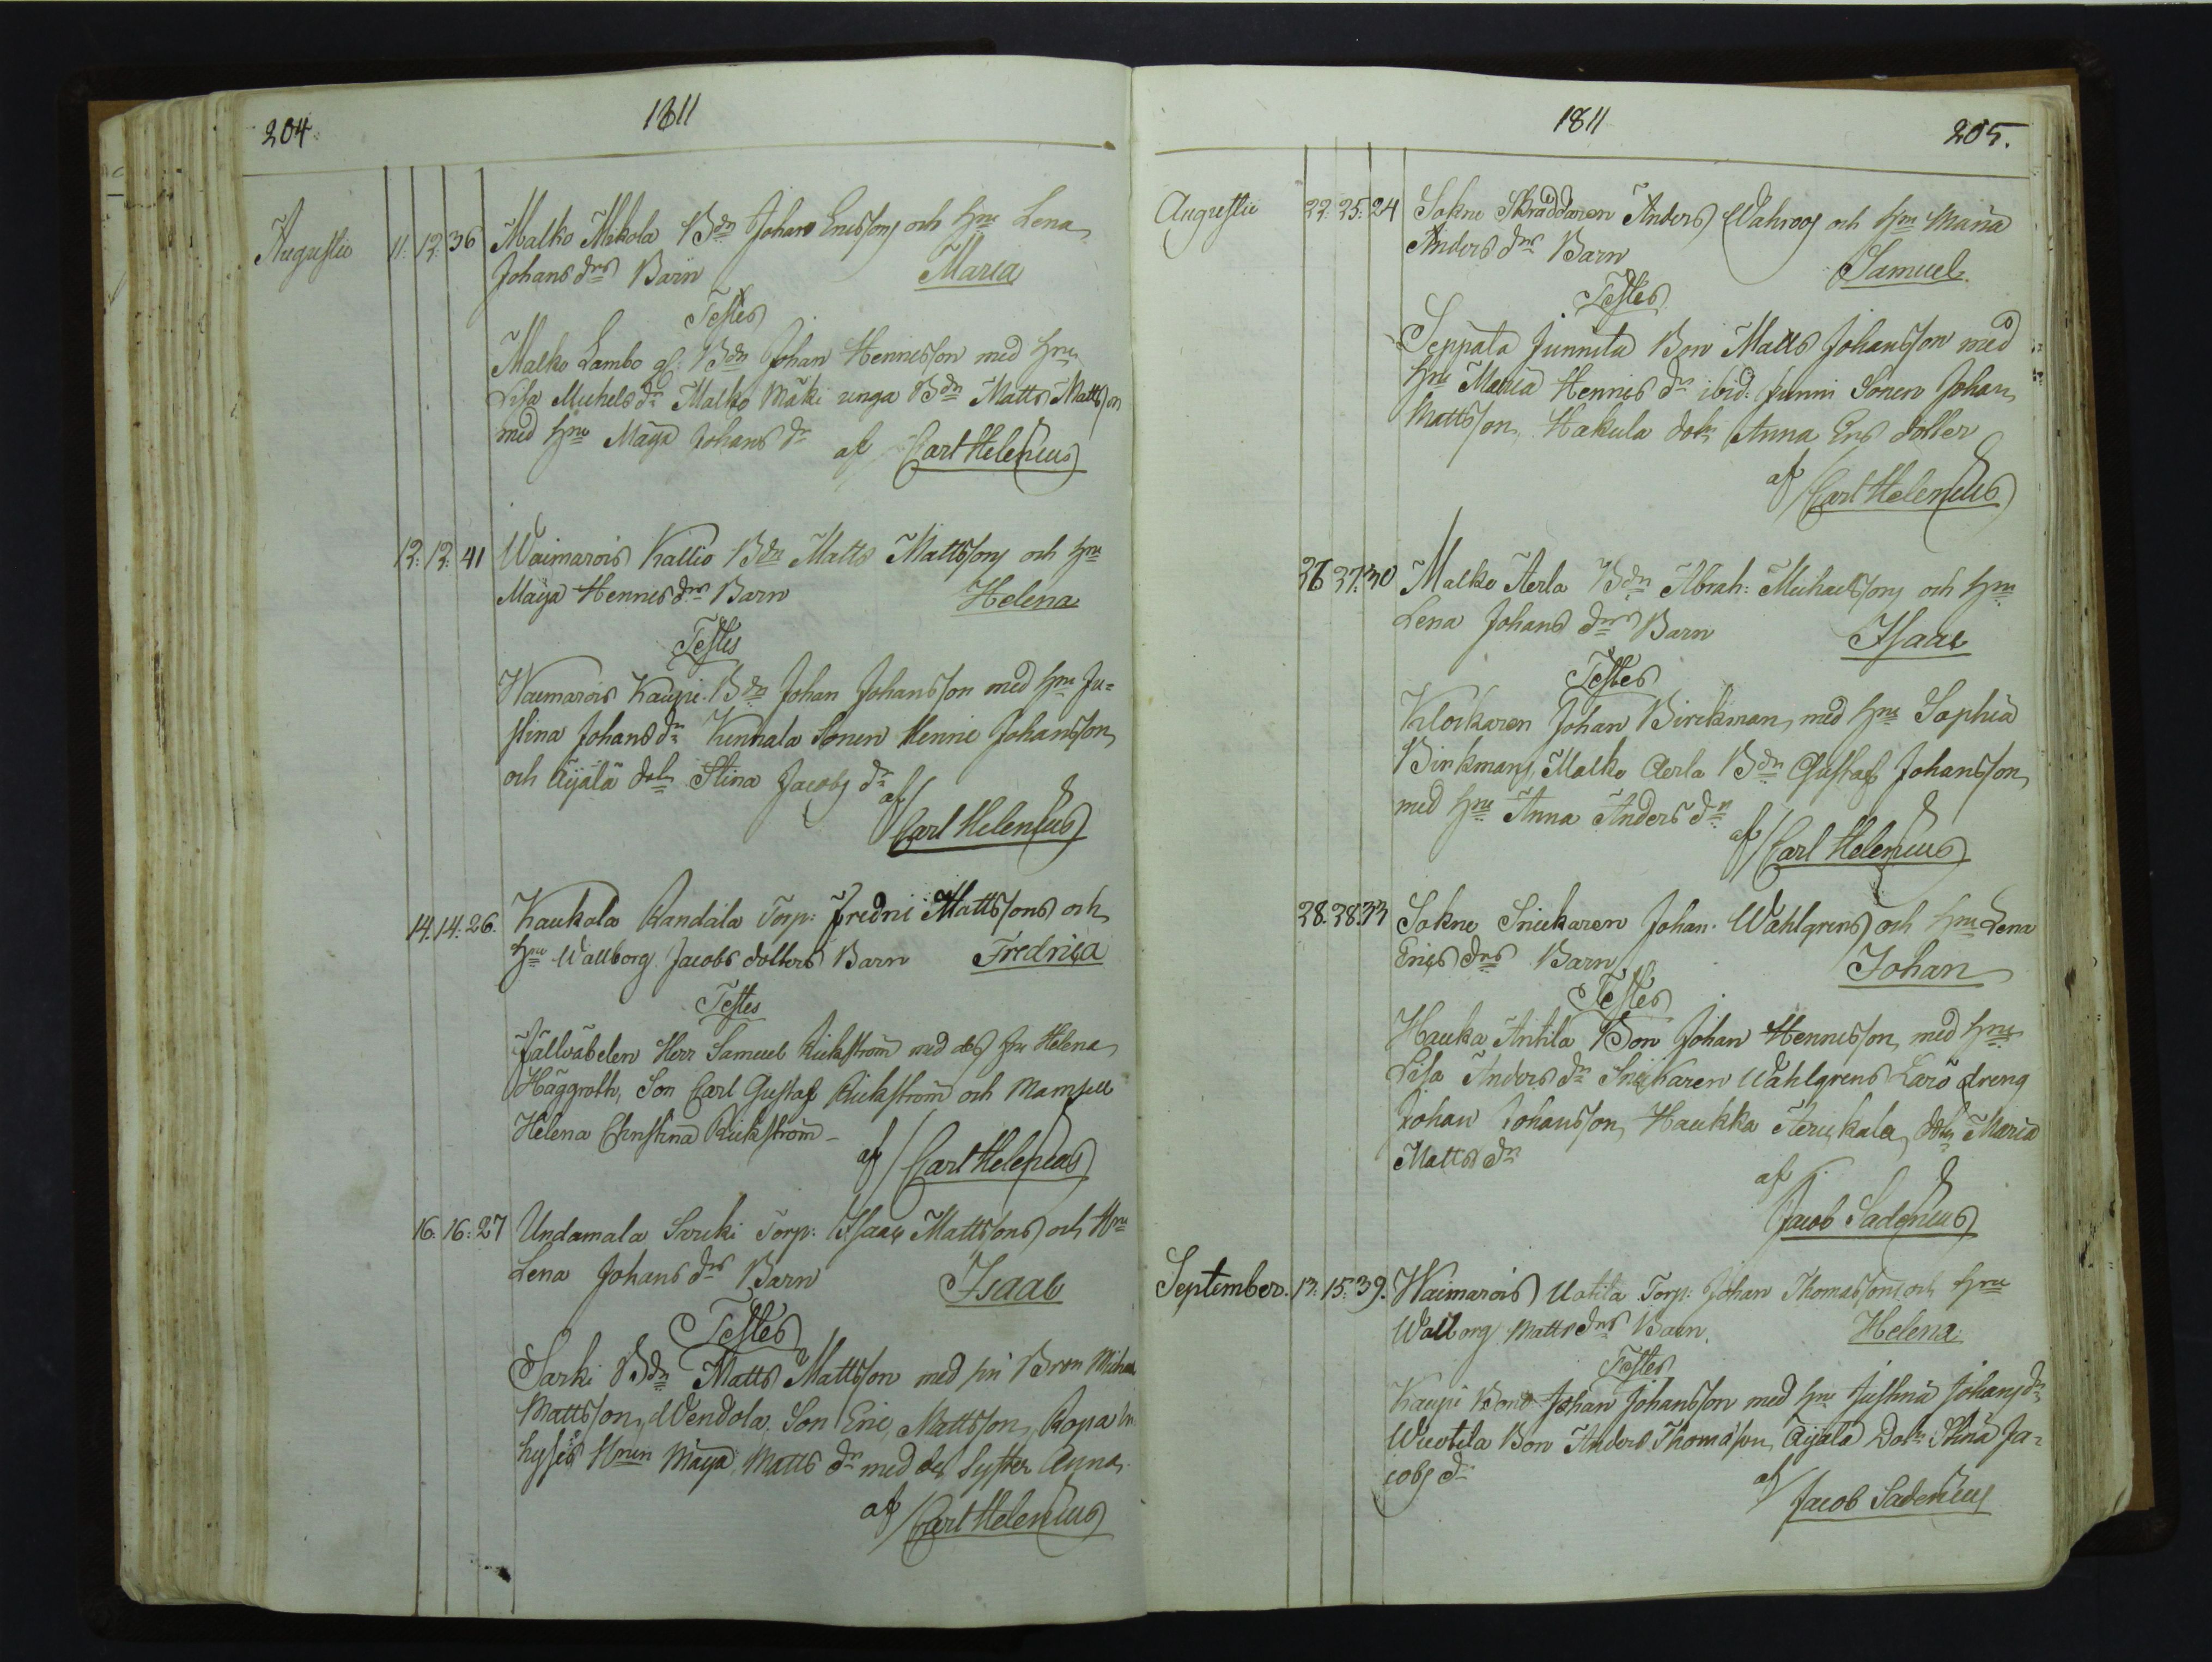 204
1811
Augusti
11. 12. 36 Malko Mikola Bdn Johan Ericssons och Hru Lena
Johans drs Barn Maria
Testes
Malko Lambo gl: Bdn Johan Henricsson med Hru
Lisa Michels dr Malko Mäki unga Bdn Matts Mattsson
med Hru Maja Johans dr af Carl Helenius
12. 12. 41 Waimarois Kallio Bdn Matts Mattssons och Hru
Maija Henricsdrs Barn Helena
Testes
Waimarois Kaupi Bdn Johan Johansson med Hru Ju=
stina Johans dr Kinnala Sonen Henric Johansson
och Äijälä dotn Stina Jacobs dr
af
Carl Helenius
14. 14. 26. Kaukola Randala Torp: Fredric Mattssons och
Hru Wallborg Jacobs dotters Barn Fredrica
Testes
Fältväbelen Herr Samuel Rickström med des Fru Helena
Häggroth, Son Carl Gustaf Rickström och Mamsell
Helena Christina Rickström
af Carl Helenius
16. 16. 27 Undamala Sarki Torp: Isaac Mattssons och Hru
Lena Johans drs Barn Isaac
Testes
Sarki Bdn Matts Mattsson med sin Bror Michael
Mattsson, Wendola Son Eric Mattsson, Ropa
hyses Maja Matts dr med des Syster Anna
af Carl Helenius
1811
205.
Augusti
22. 25. 24 Sokne Skräddaren Anders Wahroos och Hru Maria
Anders drs Barn Samuel
Testes
Seppälä Junnila Bon Matts Johansson med
Hru Maria Henrics dr ibid: Junni Sonen Johan
Mattsson, Hakula dotn Anna Ers dotter
af
Carl Helenius
26 27. 30 Malko Aerla Bdn Abrah: Michaelssons och Hru
Lena Johans drs Barn Isaac
Testes
Klockaren Johan Birckman, med Hru Sophia
Birkman, Malko Aerla Bdn Gustaf Johansson
med Hru Anna Anders dr
af Carl Helenius
28. 28. 33 Sokne Snickaren Johan Wahlgrens och Hru Lena
Erics drs Barn Johan
Testes
Hauka Antila Bon Johan Henricsson med Hru
Lisa Anders dr Snickaren Wahlgrens Läro dreng
Johan Johansson, Haukka dotn Maria
Matts dr
af
Jacob Sadenius
September. 13. 15. 39. Waimarois Uotila Torp: Johan Thomassons och Hru
Wallborg Matts drs Barn. Helena
Testes
Kaupi Bond Johan Johansson med Hru Justina Johans dr
Wuotila Bon Anders Thomasson, Äijälä Dotn Stina Ja=
cobs dr
af
Jacob Sadenius